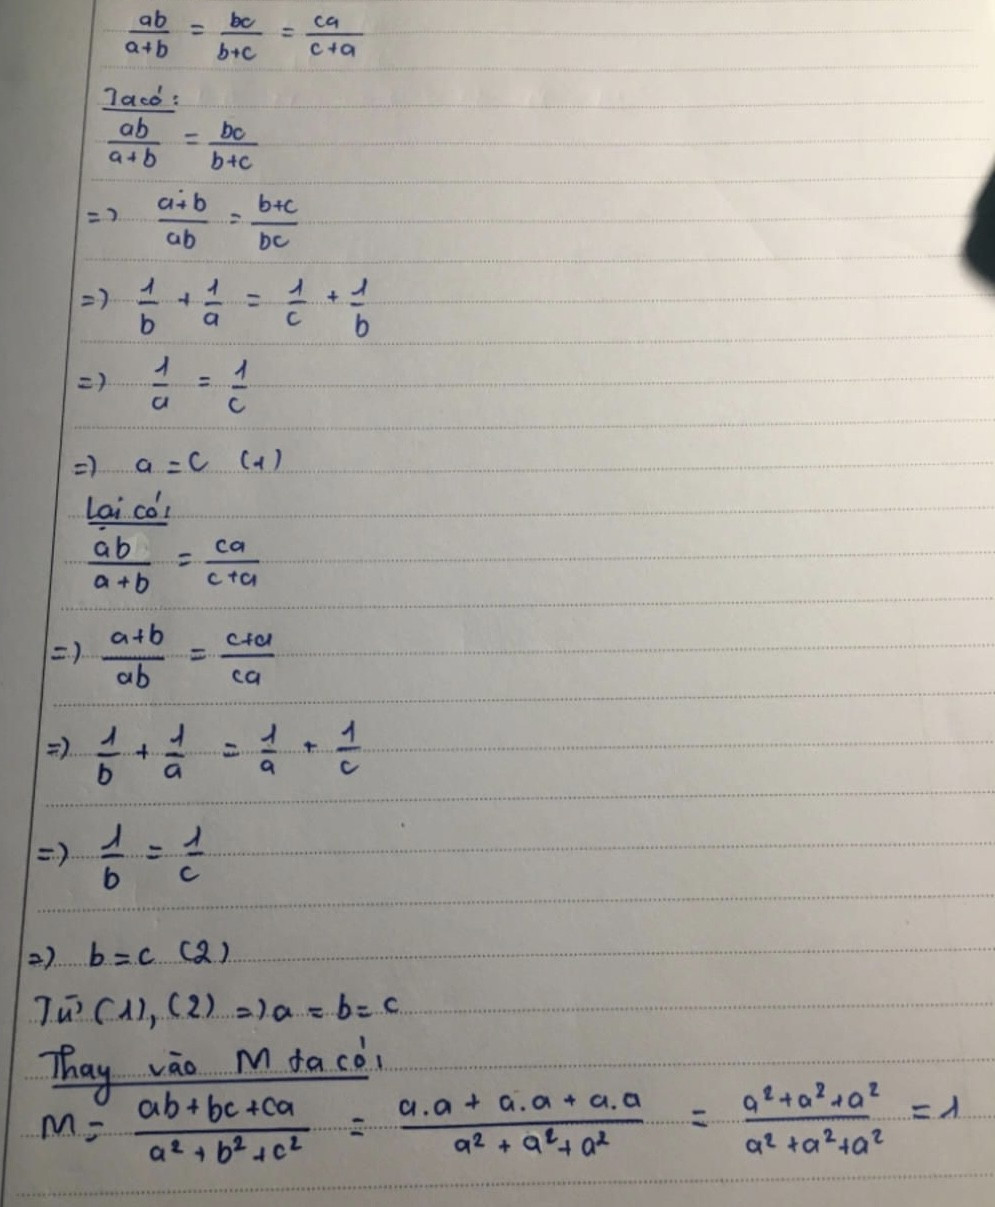 ab/(a+b) = bc/(b+c) = ca/(c+a)
Ta có:
ab/(a+b) = bc/(b+c)
=> (a+b)/ab = (b+c)/bc
=> 1/b + 1/a = 1/c + 1/b
=> 1/a = 1/c
=> a = c (1)
Lại có:
ab/(a+b) = ca/(c+a)
=> (a+b)/ab = (c+a)/ca
=> 1/b + 1/a = 1/a + 1/c
=> 1/b = 1/c
=> b = c (2)
Từ (1), (2) => a = b = c
Thay vào M ta có:
M = (ab+bc+ca)/(a²+b²+c²) = (a.a + a.a + a.a)/(a²+a²+a²) = (a²+a²+a²)/(a²+a²+a²) = 1